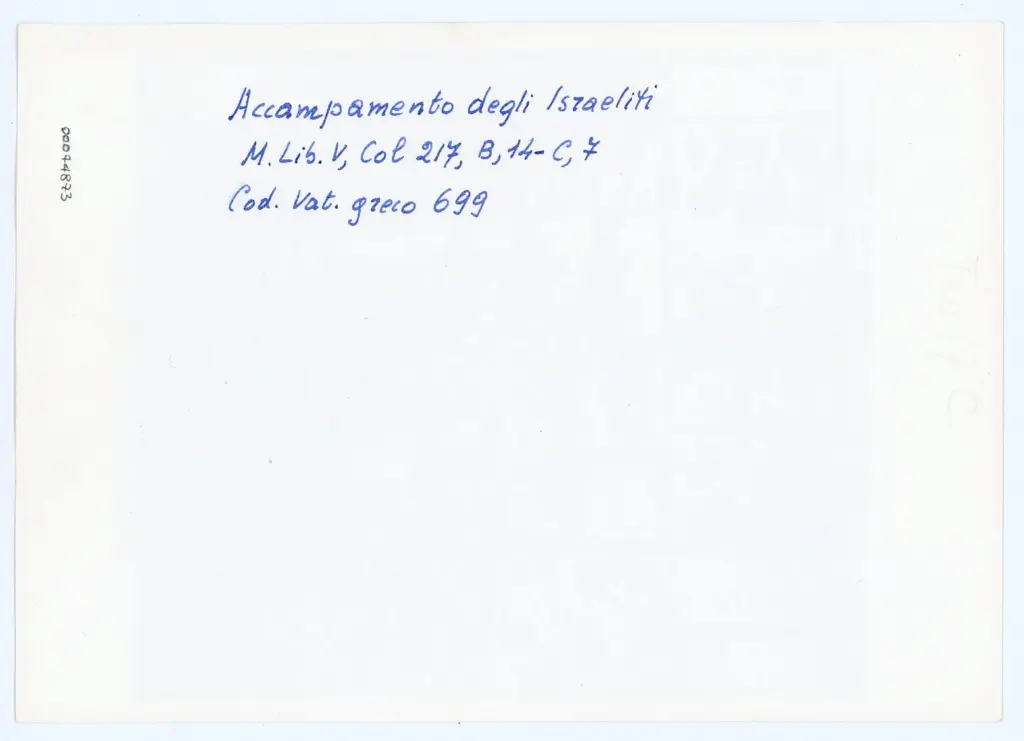 Accampamento degli Israeliti
M. Lib. V, Col 217, B, 14-C, 7
Cod. Vat. greco 699
00044873